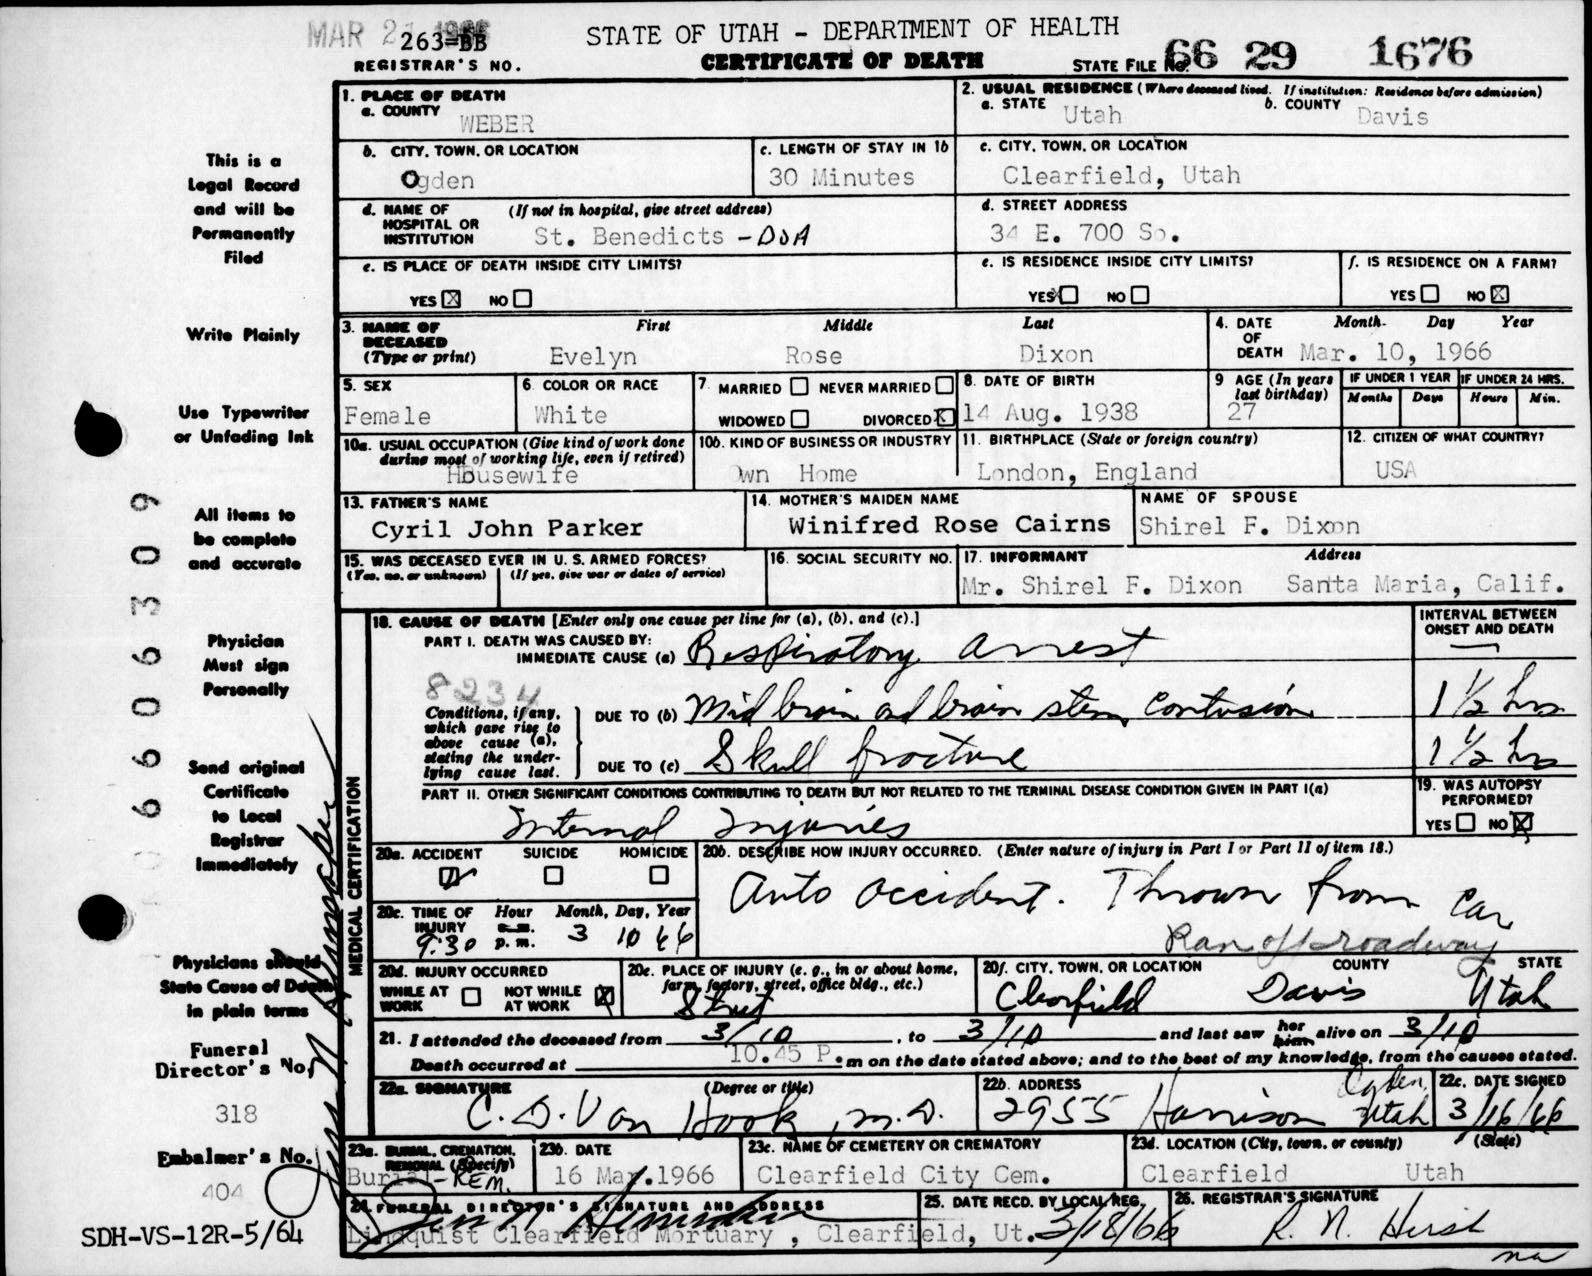 MAR 2
263-BB
STATE OF UTAH - DEPARTMENT OF HEALTH
REGISTRAR'S NO.
CERTIFICATE OF DEATH
STATE FILE No. 66 29 1676
1. PLACE OF DEATH
a. COUNTY
WEBER
2. USUAL RESIDENCE (Where deceased lived. If institution: Residence before admission)
a. STATE Utah
b. COUNTY Davis
b. CITY, TOWN, OR LOCATION
Ogden
c. LENGTH OF STAY IN 1b
30 Minutes
c. CITY, TOWN, OR LOCATION
Clearfield, Utah
d. NAME OF HOSPITAL OR INSTITUTION (If not in hospital, give street address)
St. Benedicts - DOA
d. STREET ADDRESS
34 E. 700 So.
e. IS PLACE OF DEATH INSIDE CITY LIMITS?
YES ☒ NO ☐
e. IS RESIDENCE INSIDE CITY LIMITS?
YES ☐ NO ☐
f. IS RESIDENCE ON A FARM?
YES ☐ NO ☒
3. NAME OF DECEASED (Type or print)
First Middle Last
Evelyn Rose Dixon
4. DATE OF DEATH
Month Day Year
Mar. 10, 1966
5. SEX
Female
6. COLOR OR RACE
White
7. MARRIED ☐ NEVER MARRIED ☐
WIDOWED ☐ DIVORCED ☒
8. DATE OF BIRTH
14 Aug. 1938
9 AGE (In years last birthday)
27
IF UNDER 1 YEAR
Months Days
IF UNDER 24 HRS.
Hours Min.
10a. USUAL OCCUPATION (Give kind of work done during most of working life, even if retired)
Housewife
10b. KIND OF BUSINESS OR INDUSTRY
Own Home
11. BIRTHPLACE (State or foreign country)
London, England
12. CITIZEN OF WHAT COUNTRY?
USA
13. FATHER'S NAME
Cyril John Parker
14. MOTHER'S MAIDEN NAME
Winifred Rose Cairns
NAME OF SPOUSE
Shirel F. Dixon
15. WAS DECEASED EVER IN U. S. ARMED FORCES?
(Yes, no, or unknown) (If yes, give war or dates of service)
16. SOCIAL SECURITY NO.
17. INFORMANT Address
Mr. Shirel F. Dixon Santa Maria, Calif.
18. CAUSE OF DEATH [Enter only one cause per line for (a), (b), and (c).]
INTERVAL BETWEEN ONSET AND DEATH
PART I. DEATH WAS CAUSED BY:
IMMEDIATE CAUSE (a) Respiratory arrest —
8234
Conditions, if any, which gave rise to above cause (a), stating the underlying cause last.
DUE TO (b) Mid brain and brain stem contusion 1 1/2 hrs
DUE TO (c) Skull fracture 1 1/2 hrs
PART II. OTHER SIGNIFICANT CONDITIONS CONTRIBUTING TO DEATH BUT NOT RELATED TO THE TERMINAL DISEASE CONDITION GIVEN IN PART I(a)
Internal Injuries
19. WAS AUTOPSY PERFORMED?
YES ☐ NO ☒
20a. ACCIDENT SUICIDE HOMICIDE
☑ ☐ ☐
20b. DESCRIBE HOW INJURY OCCURRED. (Enter nature of injury in Part I or Part II of item 18.)
Auto accident. Thrown from car
Ran off roadway
20c. TIME OF INJURY Hour Month, Day, Year
9:30 a.m. p.m. 3 10 66
20d. INJURY OCCURRED
WHILE AT WORK ☐ NOT WHILE AT WORK ☒
20e. PLACE OF INJURY (e. g., in or about home, farm, factory, street, office bldg., etc.)
Street
20f. CITY, TOWN, OR LOCATION COUNTY STATE
Clearfield Davis Utah
21. I attended the deceased from 3/10, to 3/10 and last saw her him alive on 3/10
Death occurred at 10.45 P. m on the date stated above; and to the best of my knowledge, from the causes stated.
22a. SIGNATURE (Degree or title)
C. D. Van Hook, M.D.
22b. ADDRESS
2955 Harrison Ogden, Utah
22c. DATE SIGNED
3/16/66
23a. BURIAL, CREMATION, REMOVAL (Specify)
Burial - REM.
23b. DATE
16 Mar. 1966
23c. NAME OF CEMETERY OR CREMATORY
Clearfield City Cem.
23d. LOCATION (City, town, or county) (State)
Clearfield Utah
24. FUNERAL DIRECTOR'S SIGNATURE AND ADDRESS
Lindquist Clearfield Mortuary, Clearfield, Ut.
25. DATE RECD. BY LOCAL REG.
3/18/66
26. REGISTRAR'S SIGNATURE
R. N. Hirst
na
MEDICAL CERTIFICATION
This is a
Legal Record
and will be
Permanently
Filed
Write Plainly
Use Typewriter
or Unfading Ink
All items to
be complete
and accurate
Physician
Must sign
Personally
Send original
Certificate
to Local
Registrar
Immediately
Physicians should
State Cause of Death
in plain terms
Funeral
Director's No.
318
Embalmer's No.
404
SDH-VS-12R-5/64
6606309